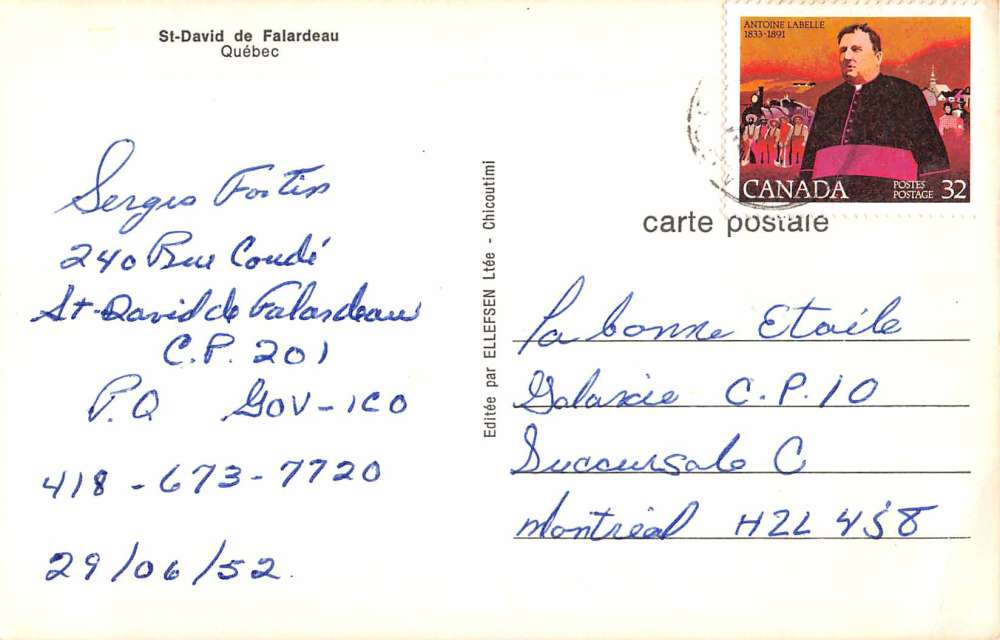 St-David de Falardeau
Québec
Sergio Fortin
240 Rue Condé
St-David de Falardeau
C.P. 201
P.Q GOV-1C0
418-673-7720
29/06/52
Editée par ELLEFSEN Ltée - Chicoutimi
ANTOINE LABELLE
1833-1891
CANADA
POSTES
POSTAGE 32
carte postale
La bonne Etoile
Galaxie C.P. 10
Succursale C
Montréal H2L 4J8